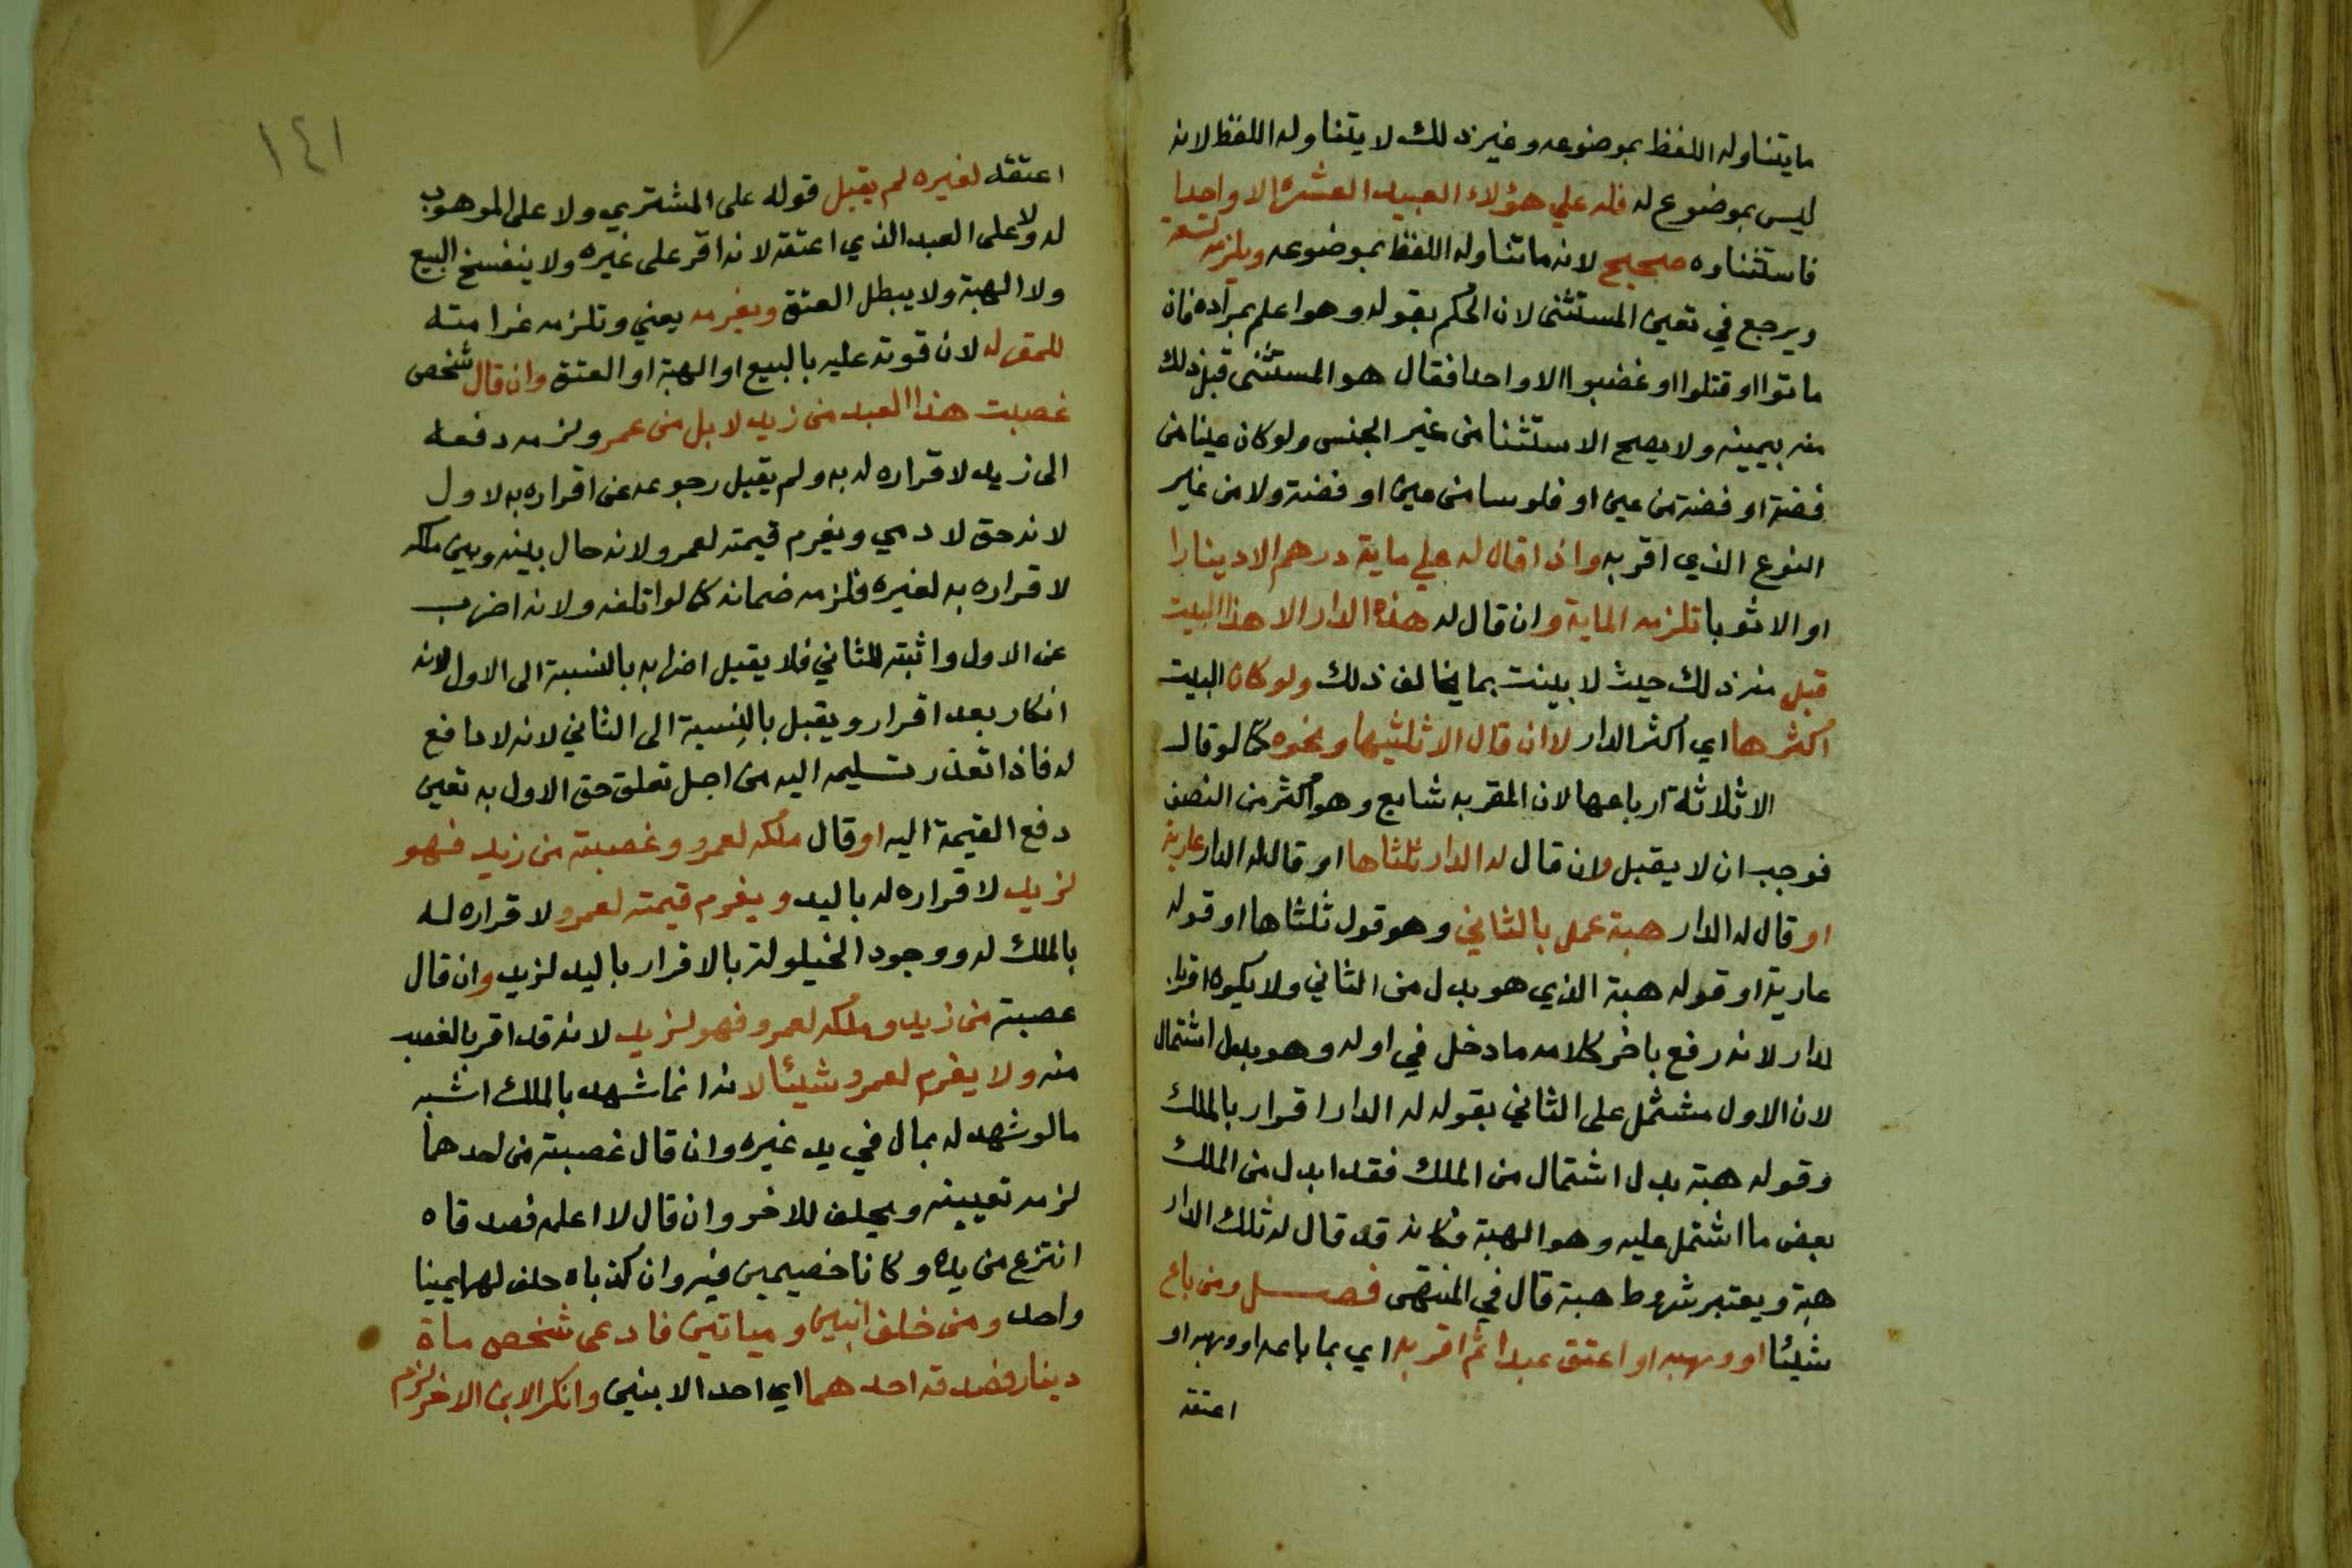 مايتناوله اللفظ بموضوعه وغير ذلك لا يتناوله اللفظ لانه
ليس بموضوع له فله علي هؤلاء العبيد العشرة الا واحدا
فاستثناوه صحيح لانه ماتناوله اللفظ بموضوعه ويلزمه تسعة
ويرجع في تعين المستثنى لان الحكم بقوله وهو اعلم بمراده فان
ماتوا او قتلوا او غضبوا الا واحدا فقال هو المستثنى قبل ذلك
منه بيمينه ولا يصح الاستثنا من غير الجنس ولو كان عينا من
فضة او فضة من عين او فلوسا من عين او فضة ولا من غير
النوع الذي اقر به واذا قال له علي ماية درهم الا دينارا
او الا ثوبا تلزمه الماية وان قال له هذه الدار الا هذا البيت
قبل منه ذلك حيث لا بينت بما يخالف ذلك ولو كان البيت
اكثرها اي اكثر الدار لا ان قال الا ثلثيها ونحوه كما لو قال
الا ثلاثة ارباعها لان المقر به شايع وهو اكثر من النصف
فوجب ان لا يقبل وان قال له الدار ثلثاها او قال له الدار عارية
او قال له الدار هبة عمل بالثاني وهو قول ثلثاها او قوله
عارية او قوله هبة الذي هو بدل من الثاني ولا يكون اقرا
لدار لانه رفع باخر كلامه ما دخل في اوله وهو بدل اشتمال
لان الاول مشتمل على الثاني بقوله له الدار اقرار بالملك
وقوله هبة بدل اشتمال من الملك فقد ابدل من الملك
بعض ما اشتمل عليه وهو الهبة فكانه قد قال له تلك الدار
هبة ويعتبر شروط هبة قال في المنتهى فصل ومن باع
شيئا او وهبه او اعتق عبدا ثم اقر به اي بما باعه او وهبه او
اعتقه
١٤١
اعتقه لغيره لم يقبل قوله على المشتري ولا على الموهوب
له ولا على العبد الذي اعتقه لانه اقر على غيره ولا ينفسخ البيع
ولا الهبة ولا يبطل العتق ويغرمه يعني وتلزمه غرامته
للمقر له لان فوته عليه بالبيع او الهبة او العتق وان قال شخص
غصبت هذا العبد من زيد لا بل من عمرو لزمه دفعه
الى زيد لاقراره له به ولم يقبل رجوعه عن اقراره به لاول
لانه حق لادمي ويغرم قيمته لعمرو لانه حال بينه وبين ملكه
لاقراره به لغيره فلزمه ضمانه كما لو اتلفه ولانه اضرب
عن الاول واثبته للثاني فلا يقبل اضرابه بالنسبة الى الاول لانه
انكار بعد اقرار ويقبل بالنسبة الى الثاني لانه لا دافع
له فاذا تعذر تسليمه اليه من اجل تعلق حق الاول به تعين
دفع القيمة اليه او قال ملكه لعمرو وغصبته من زيد فهو
لزيد لاقراره له باليد ويغرم قيمته لعمرو لاقراره له
بالملك له ووجود الخيلولة بالاقرار باليد لزيد وان قال
عصبته من زيد وملكه لعمرو فهو لزيد لانه قد اقر بالغصب
منه ولا يغرم لعمرو شيئا لانه انما شهد بالملك اشبه
مالو شهد له بمال في يد غيره وان قال غصبته من احدهما
لزمه تعيينه ويحلف للاخر وان قال لا اعلمه فصدقاه
انتزع من يده وكانا خصيمين فيه وان كذباه حلف لهما يمينا
واحد ومن خلف ابنين ومياتين فادعى شخص ماة
دينار فصدقه احدهما اي احد الابنين وانكر الابن الاخر لزم